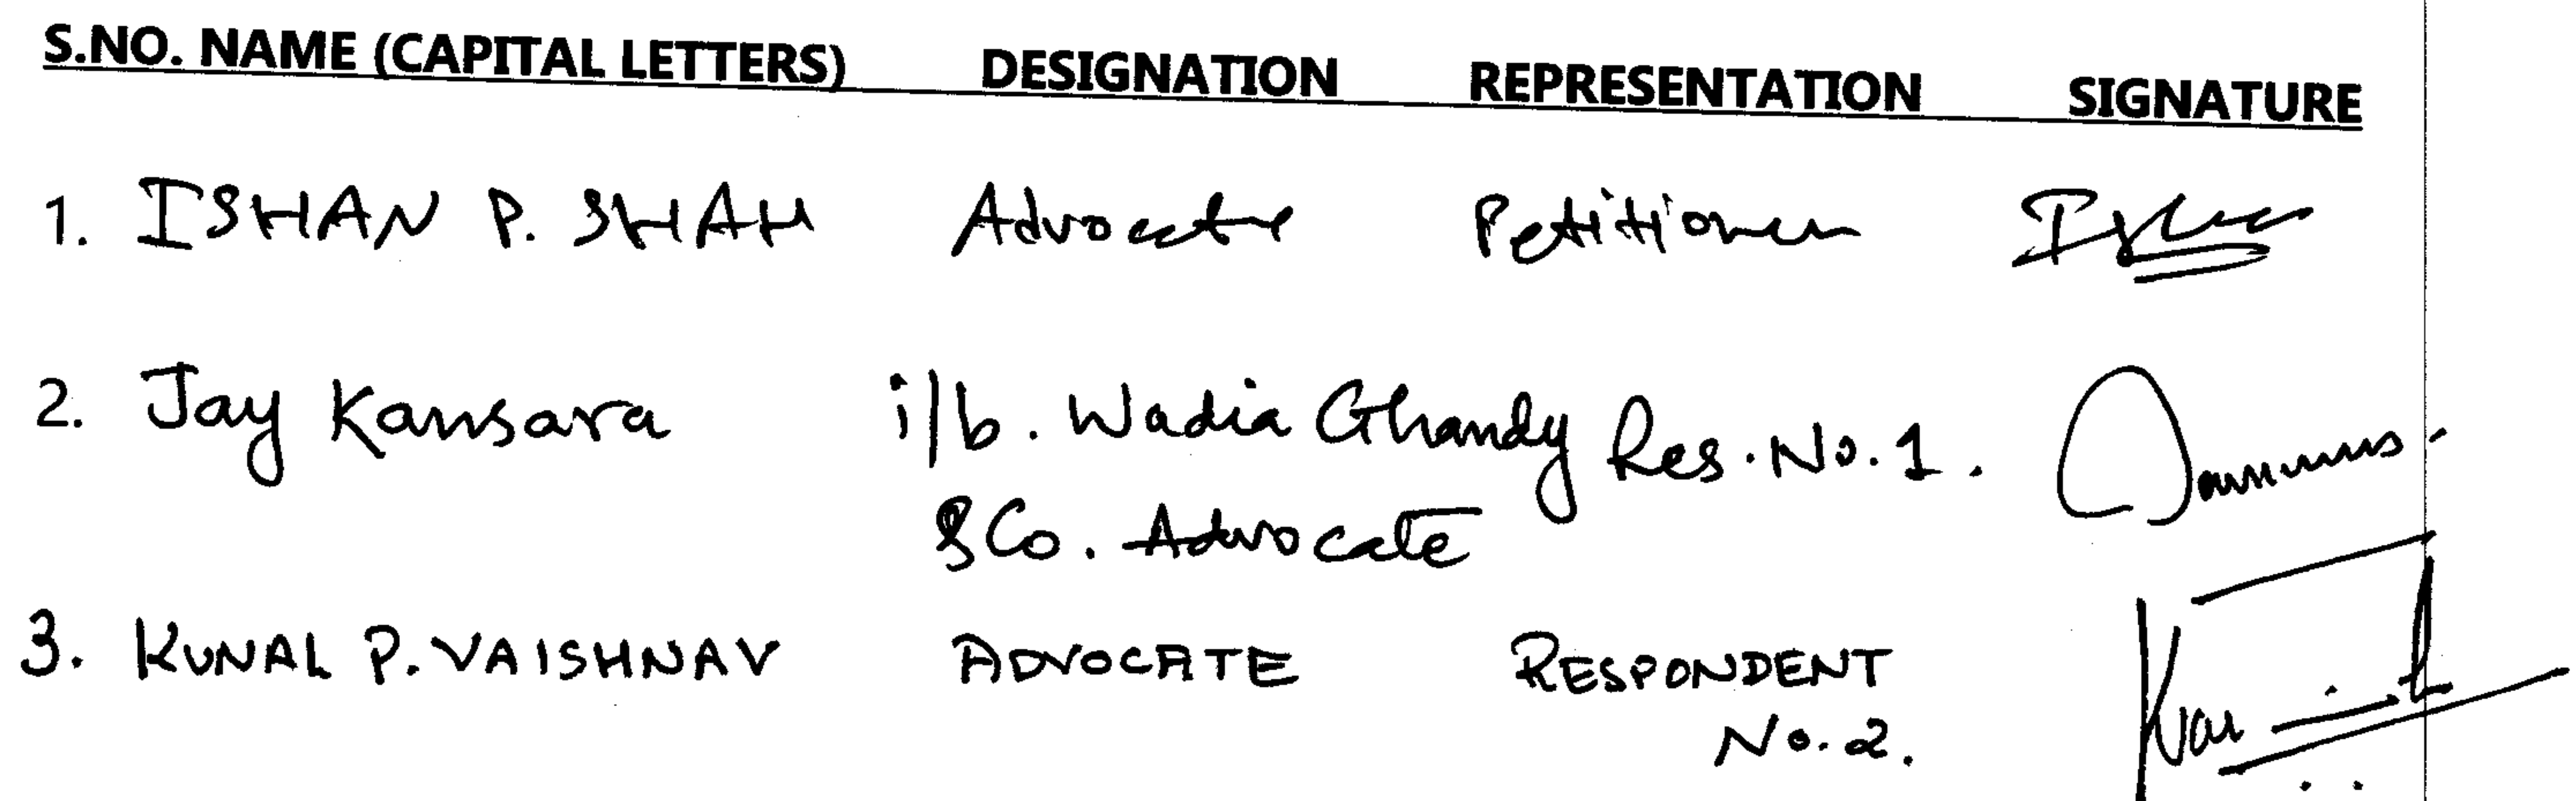 S.NO. NAME (CAPITAL LETTERS) DESIGNATION REPRESENTATION SIGNATURE
1. ISHAN P. SHAH Advocate Petitioner
2. Jay Kansara i/b. Wadia Ghandy Res. No. 1.
& Co. Advocate
3. KUNAL P. VAISHNAV ADVOCATE RESPONDENT
No. 2.